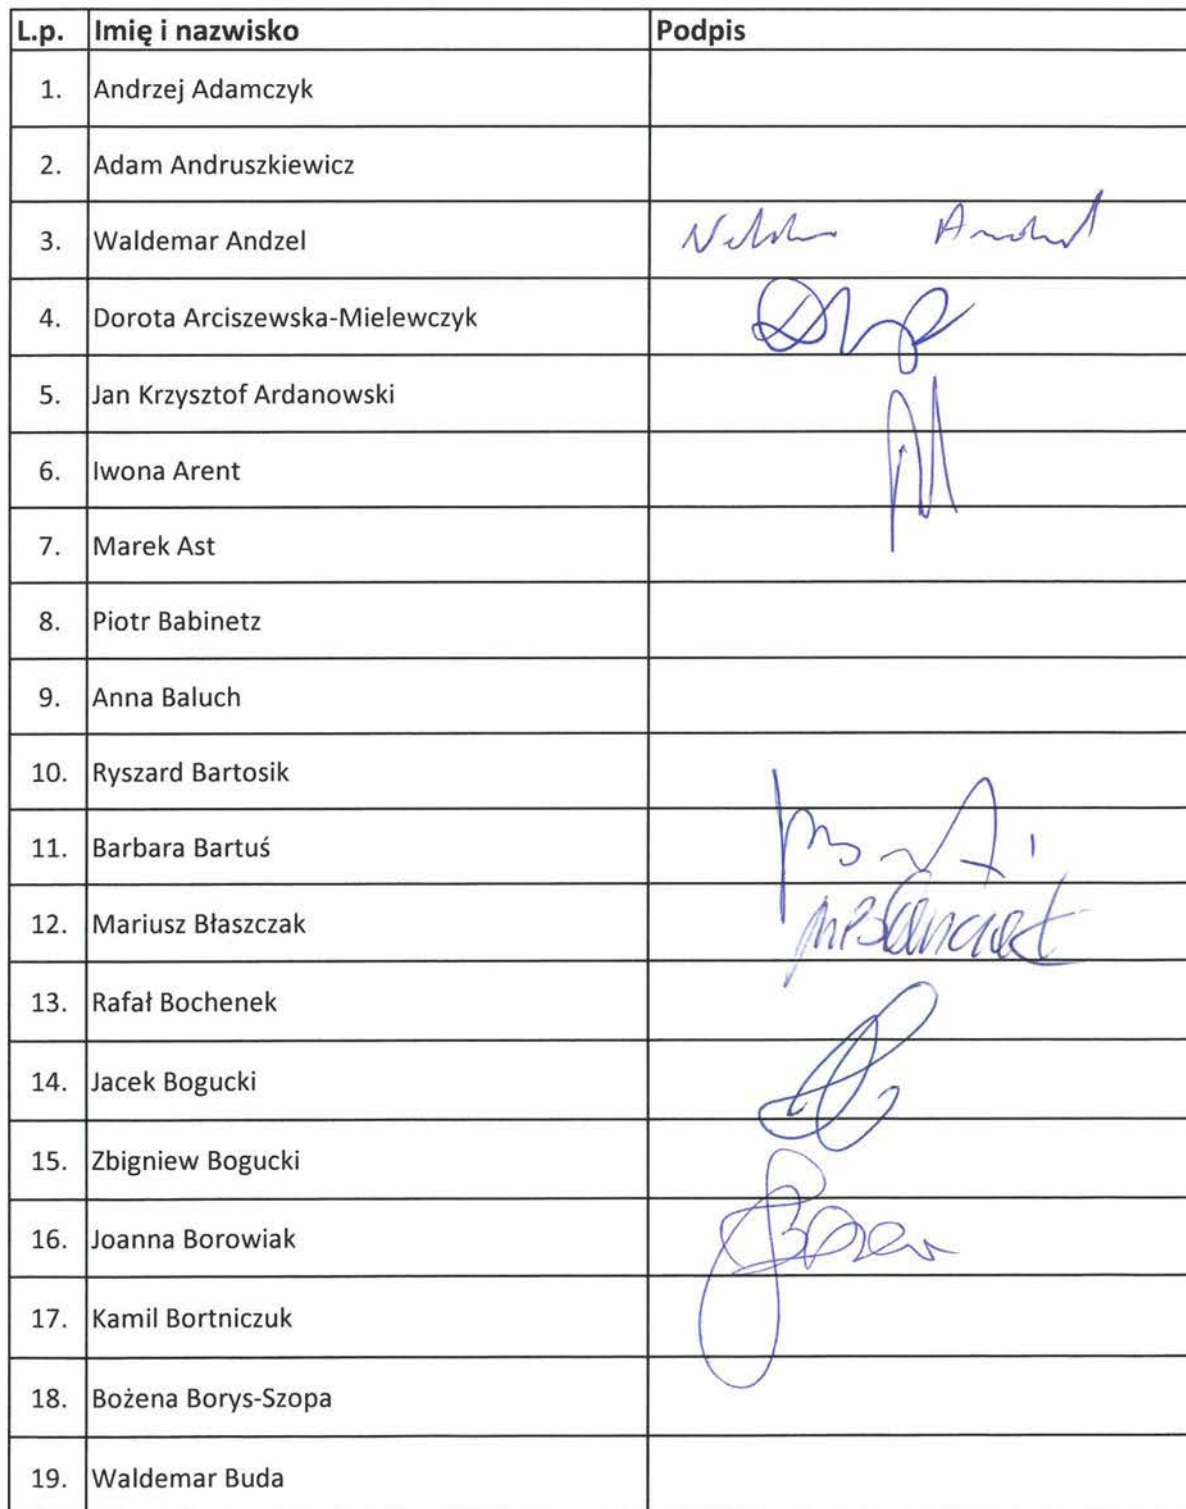 L.p. Imię i nazwisko Podpis
1. Andrzej Adamczyk
2. Adam Andruszkiewicz
3. Waldemar Andzel
4. Dorota Arciszewska-Mielewczyk
5. Jan Krzysztof Ardanowski
6. Iwona Arent
7. Marek Ast
8. Piotr Babinetz
9. Anna Baluch
10. Ryszard Bartosik
11. Barbara Bartuś
12. Mariusz Błaszczak
13. Rafał Bochenek
14. Jacek Bogucki
15. Zbigniew Bogucki
16. Joanna Borowiak
17. Kamil Bortniczuk
18. Bożena Borys-Szopa
19. Waldemar Buda